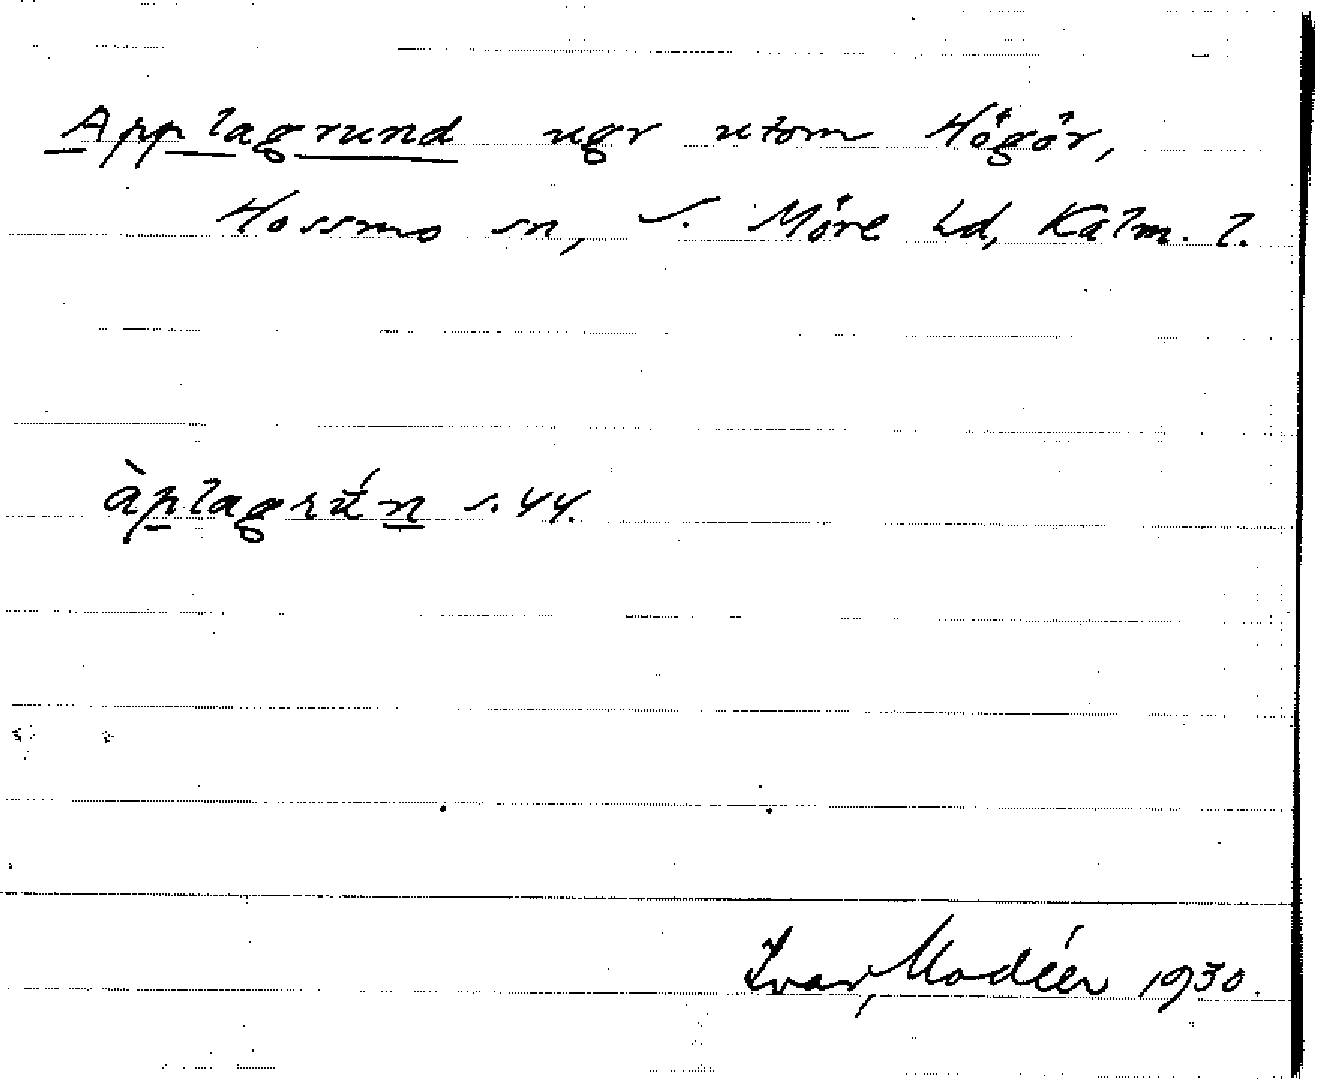 Applagrund ugr utom Högör,
Hossmo sn, S. Möre hd, Kalm. l.
àplagrún s. 44.
Ivar Modéer 1930.